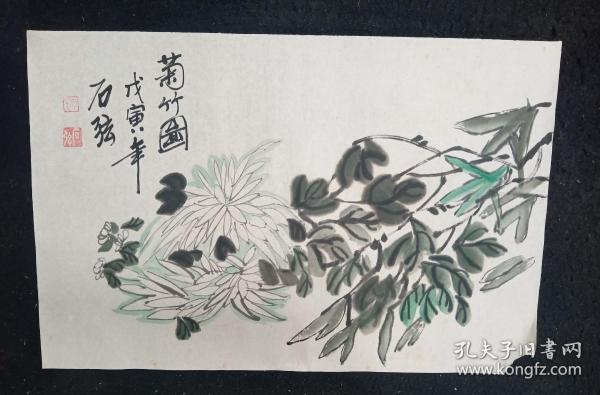 菊竹图
戊寅年
石弦
孔夫子旧書网
www.kongfz.com